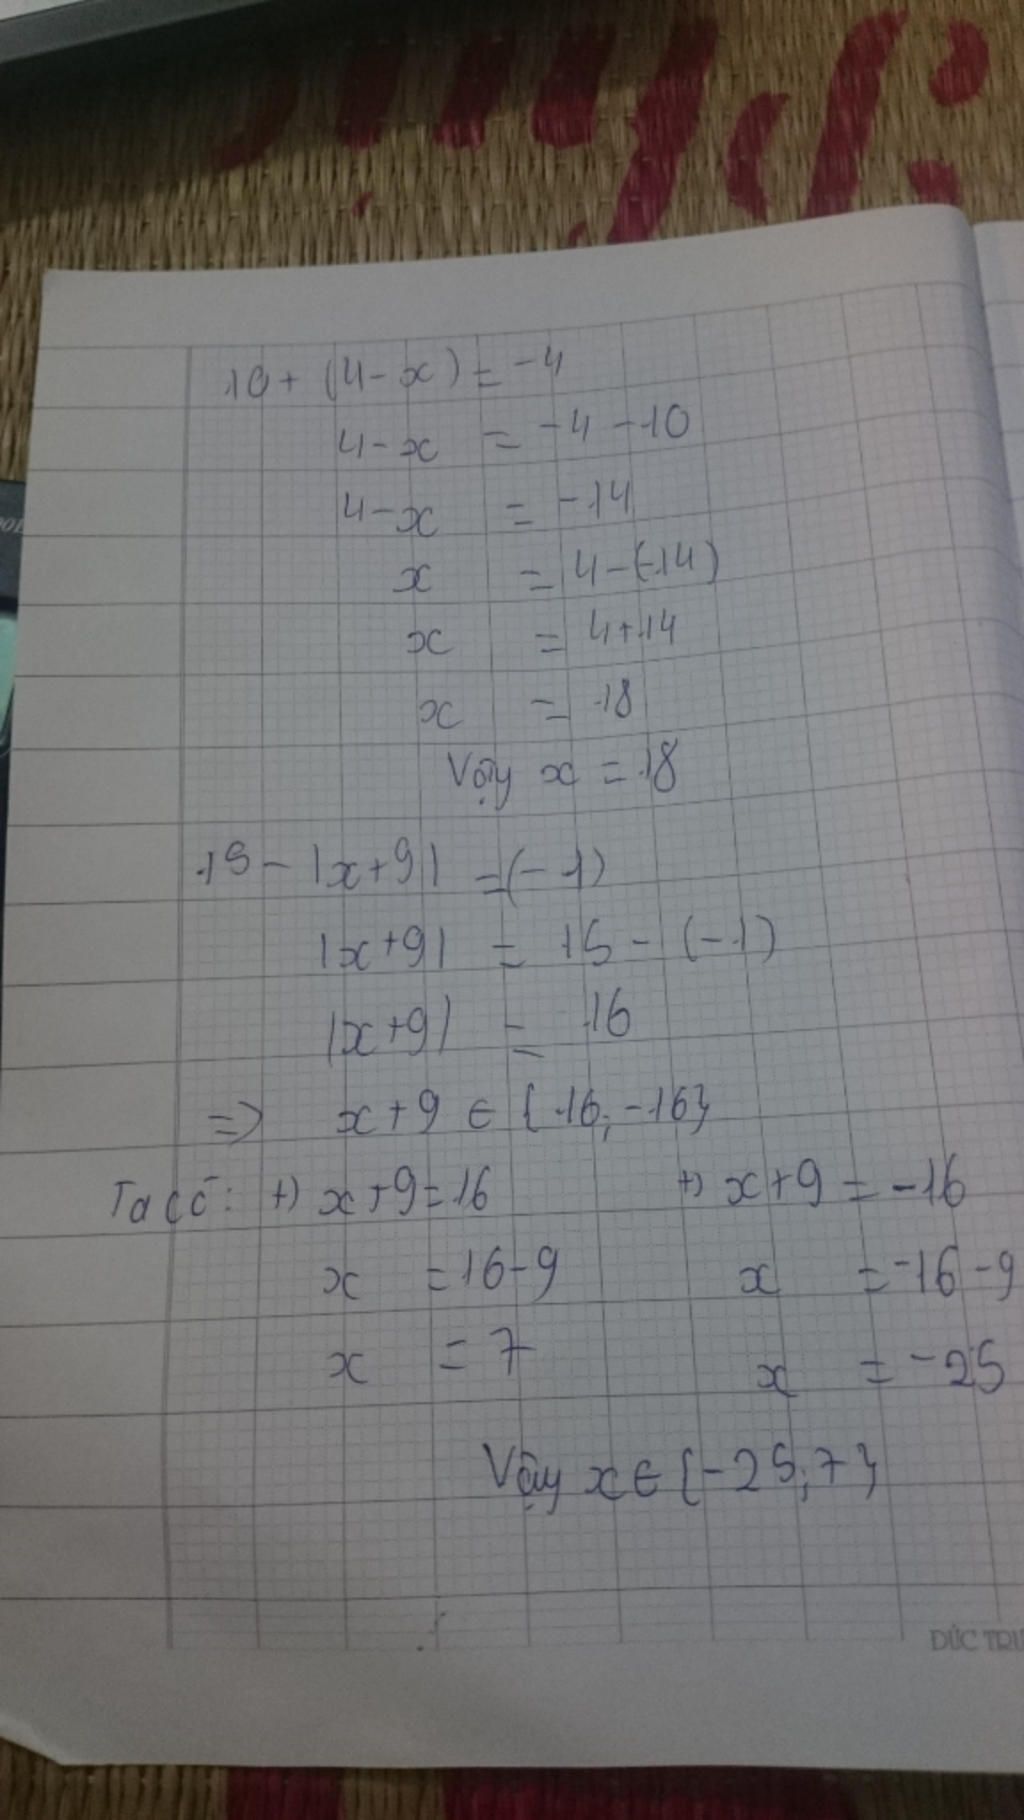 10 + (4 - x) = -4
4 - x = -4 - 10
4 - x = -14
x = 4 - (-14)
x = 4 + 14
x = 18
Vậy x = 18
15 - |x + 9| = (-1)
|x + 9| = 15 - (-1)
|x + 9| = 16
=> x + 9 ∈ {16; -16}
Ta có: +) x + 9 = 16 +) x + 9 = -16
x = 16 - 9 x = -16 - 9
x = 7 x = -25
Vậy x ∈ {-25; 7}
ĐỨC